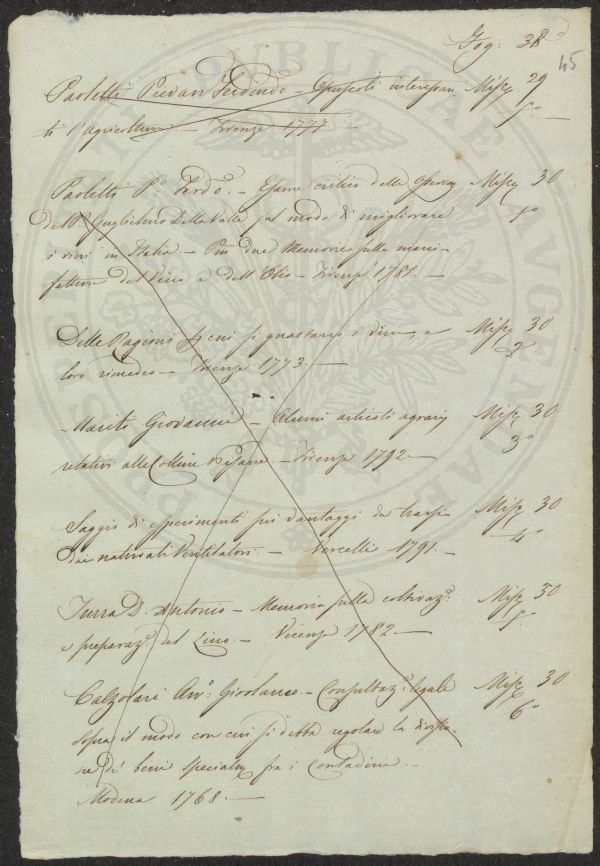 Fog: 38
45
Paoletti Pievan Ferdindo – Opuscoli interessan Misc. 29
ti l'Agricoltura. – Firenze 1777 5°
Paoletti P. Ferdo. – Esame critico delle Osservaz Misc. 30
dell P. Guglielmo Della Valle sul modo di migliorare 1°
i vini in Italia. – Più due Memorie sulla mani-
fattura del Vino e dell'Olio – Firenze 1781. –
Delle Ragioni per cui si guastano i vini, e Misc. 30
loro rimedio – Firenze 1773. – 2°
Mariti Giovanni – Alcuni articoli agrarj Misc. 30
relativi alle Colline Pisane. – Firenze 1792 – 3°
Saggio di esperimenti sui vantaggi da trarsi Misc. 30
dai naturali Ventilatori. – Vercelli 1791. – 4°
Turra D. Antonio – Memoria sulla coltivaz.e Misc. 30
e preparaz.e del Lino. – Vicenza 1782 – 5°
Calzolari Avv.o Girolamo – Consultaz.e legale Misc. 30
sopra il modo con cui si debba regolare la divisio- 6°
ne de' beni specialm fra i Contadini. –
Modena 1768. –
PUBLICAE AUGENDAE PROSPERITATI